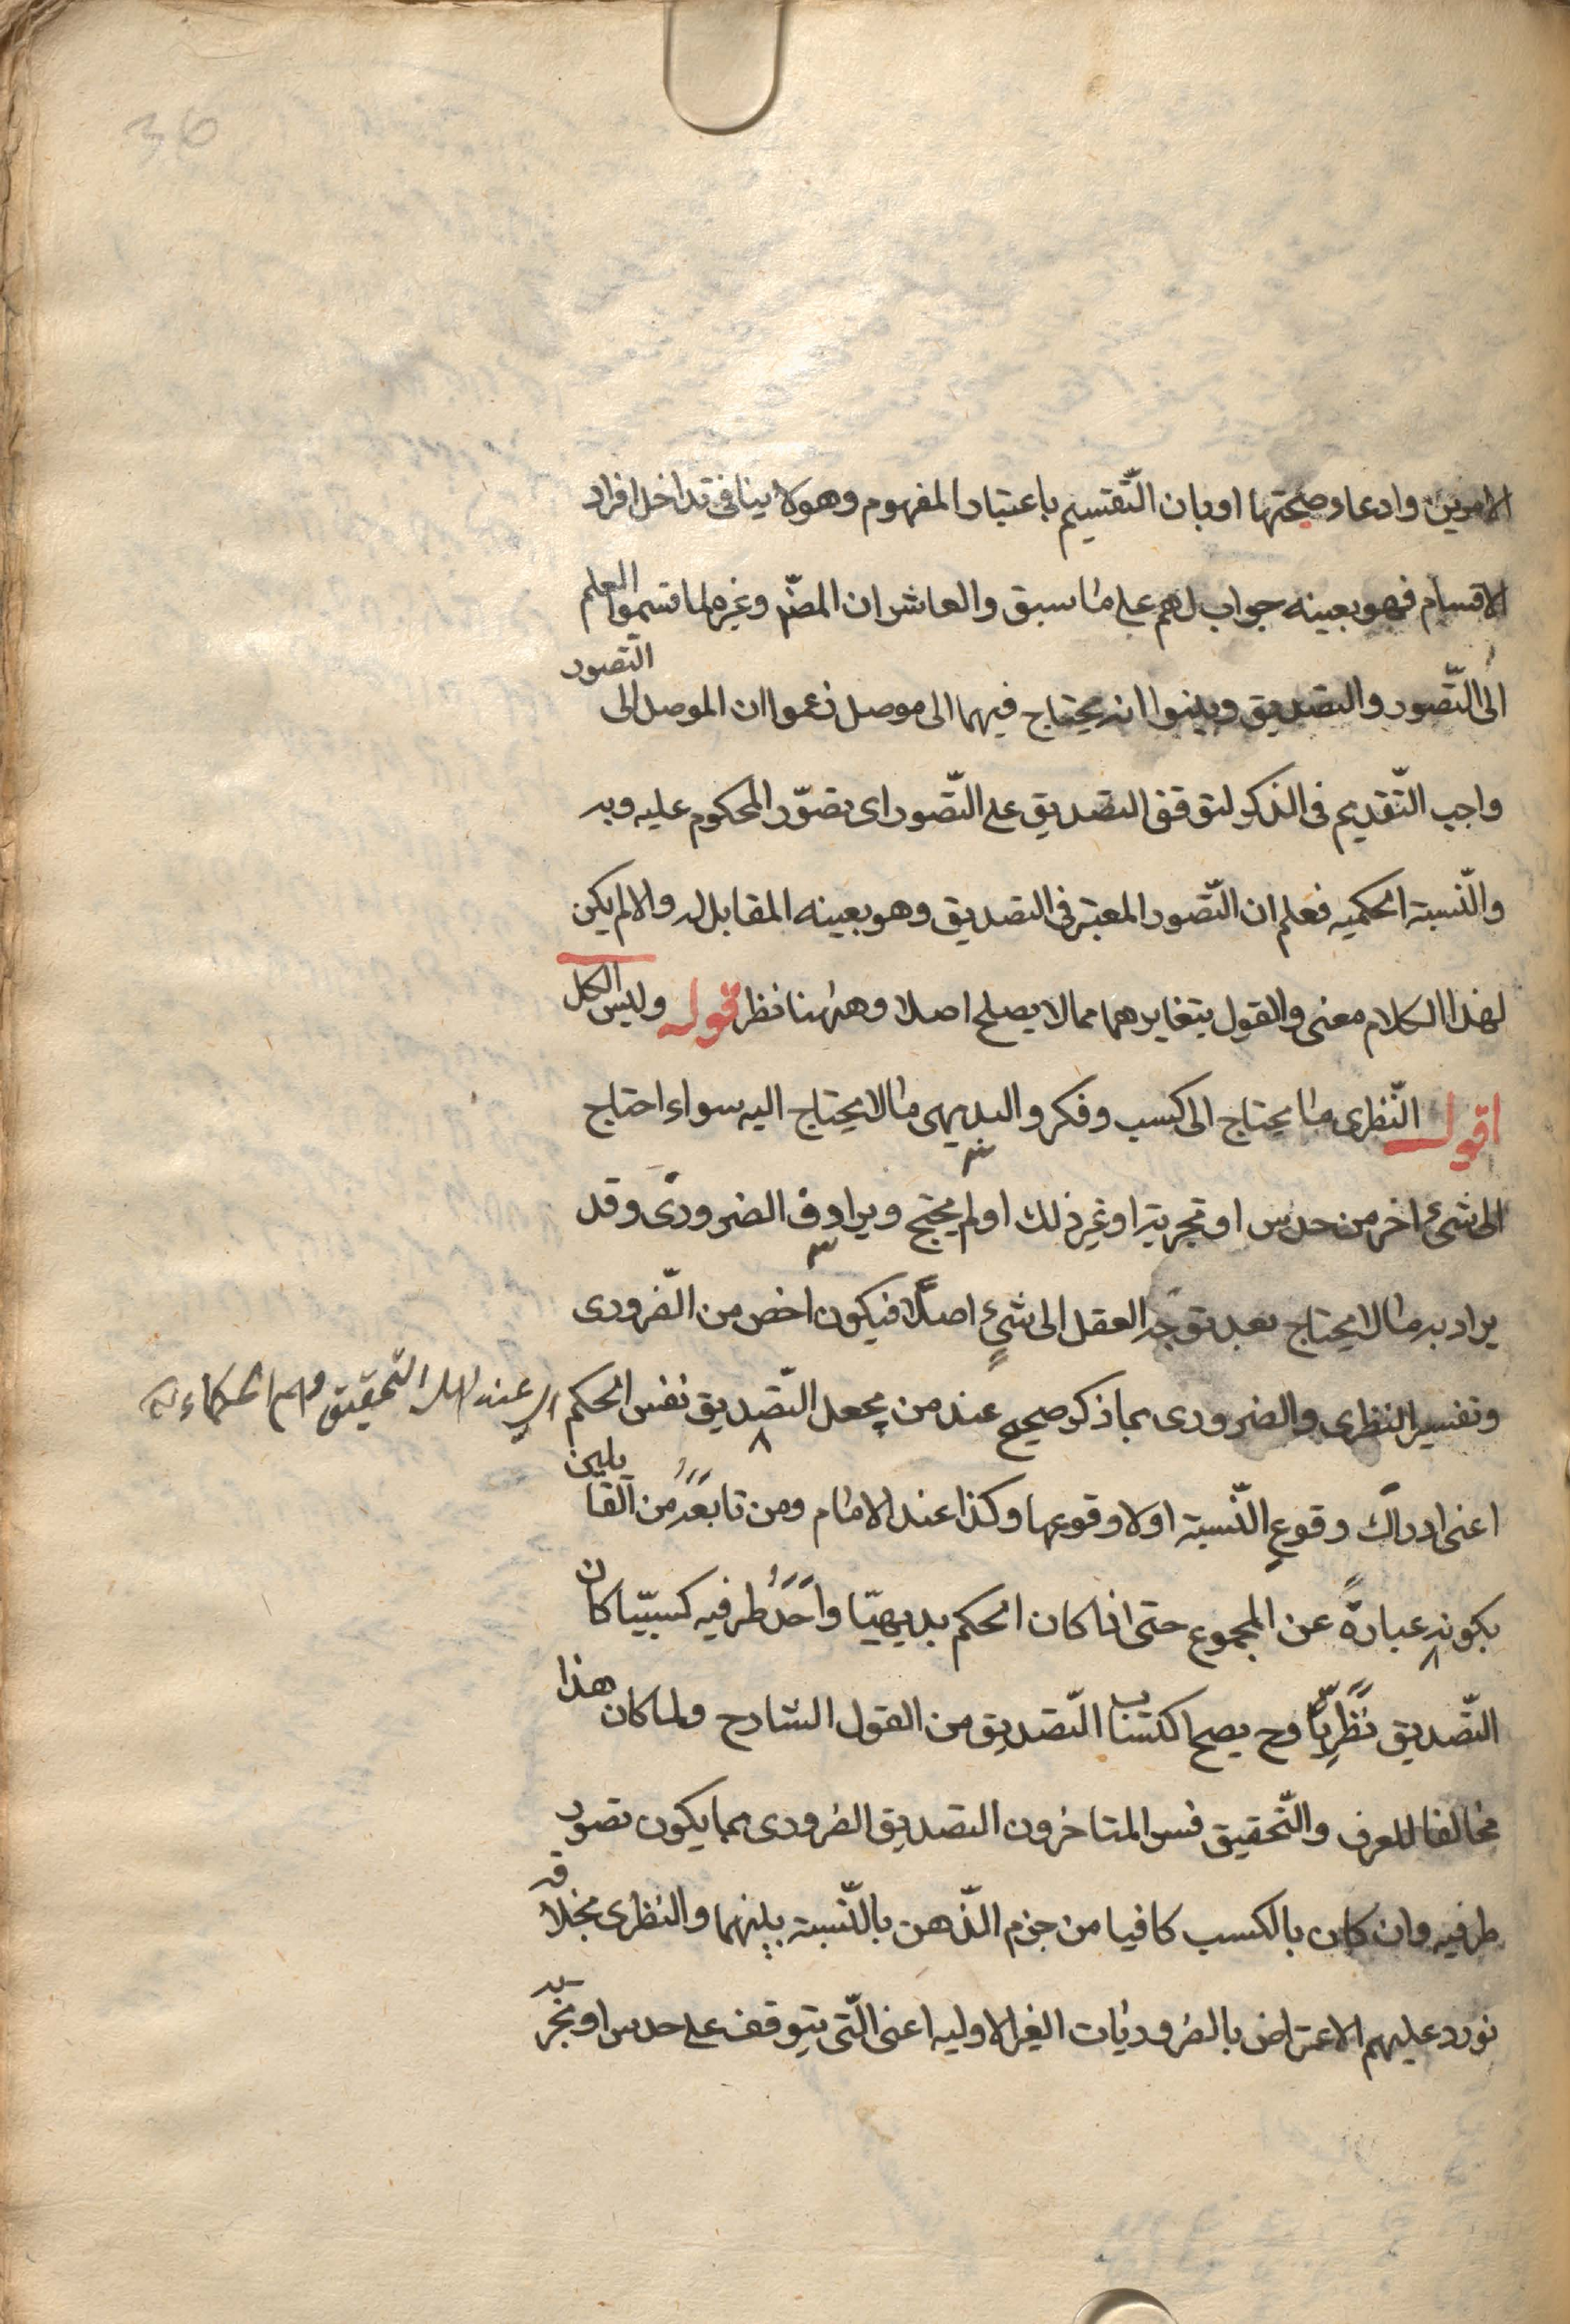 36
الامرين وادعاء صحتها او بان التّقسيم باعتبار المفهوم وهو لا ينافى تداخل افراد
الاقسام فهو بعينه جواب لهم على ما سبق والعاشر ان المصّ وغيره لما قسموا العلم
الى التّصور والتصديق وبينوا انه يحتاج فيهما الى موصل زعموا ان الموصل الى التّصور
واجب التّقديم فى الذكر لتوقف التصديق على التّصور اى تصوّر المحكوم عليه وبه
والنّسبة الحكميه فعلم ان التّصور المعتبر فى التصديق وهو بعينه المقابل له والا لم يكن
لهذا الكلام معنى والقول بتغايرهما مما لا يصلح اصلا وههنا نظر قوله وليس الكل
اقول النّظرى ما يحتاج الى كسب وفكر والبديهى ما لا يحتاج اليه سواء احتاج
الى شئ اخر من حدس او تجربة او غير ذلك او لم يحتج ويرادف الضرورىّ وقد
يراد به ما لا يحتاج بعد توجّه العقل الى شئٍ اصلًا فيكون اخص من الضّرورى
وتفسير النظرى والضرورى بما ذكر صحيح عند من يجعل التّصديق نفس الحكم
اى عند اهل التّحقيق وهم الحكماء
اعنى ادراك وقوع النّسبة او لا وقوعها وكذا عند الامام ومن تابعَهُ من القايلين
بكونه عبارةً عن المجموع حتى اذا كان الحكم بديهيّا واَحَدُ طرفيه كسبيّا كان
التّصديق نَظَريّاً وح يصح اكتساب التّصديق من القول الشارح ولما كان هذا
مخالفا للعرف والتّحقيق فسر المتاخرون التصديق الضرورى بما يكون تصور
طرفيه وان كان بالكسب كافيا من جزم الذّهن بالنّسبة بينهما والنظرى بخلافه
نورد عليهم الاعتراض بالضروريات الغير الاوليه اعنى الّتى يتوقف على حدس او تجربة